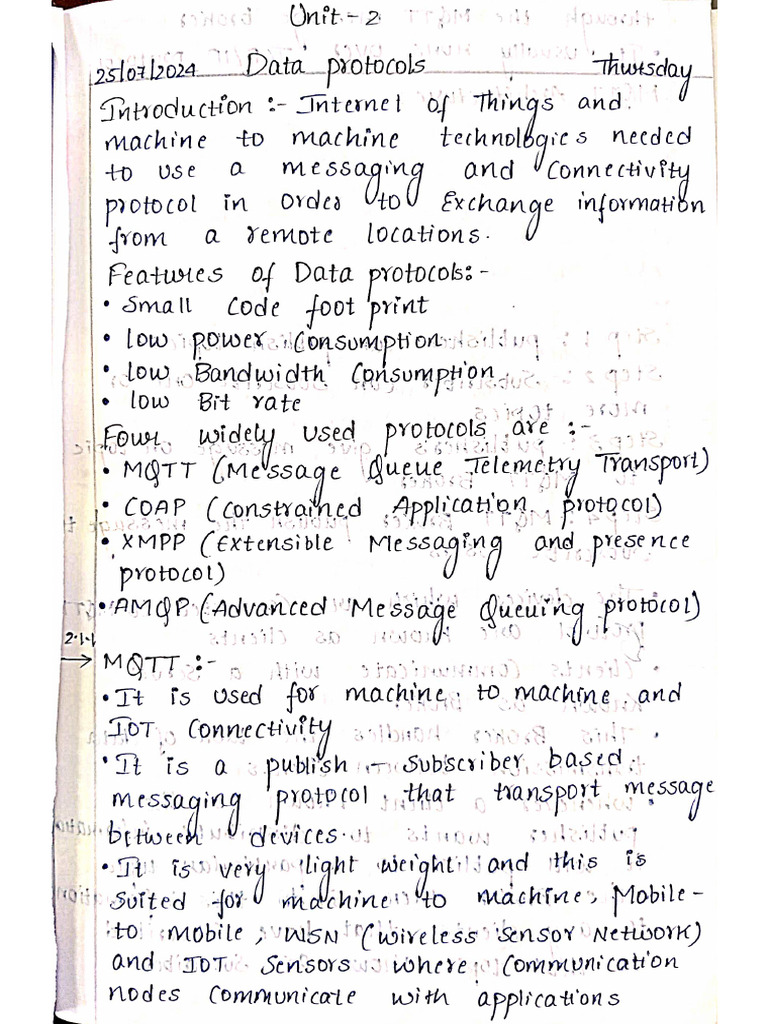 Unit - 2
25/07/2024 Data protocols Thursday
Introduction :- Internet of Things and
machine to machine technologies needed
to use a messaging and Connectivity
protocol in order to Exchange information
from a remote locations.
Features of Data protocols:-
• Small Code foot print
• low power Consumption
• low Bandwidth Consumption
• low Bit rate
Four widely used protocols are :-
• MQTT (Message Queue Telemetry Transport)
• COAP (Constrained Application protocol)
• XMPP (Extensible Messaging and presence
protocol)
• AMQP (Advanced Message Queuing protocol)
2.1.1
→ MQTT :-
• It is used for machine to machine and
IOT Connectivity
• It is a publish - Subscriber based
messaging protocol that transport message
between devices.
• It is very light weight and this is
Suited for machine to machine, Mobile-
to mobile, WSN (Wireless Sensor Network)
and IOT Sensors where Communication
nodes Communicate with applications